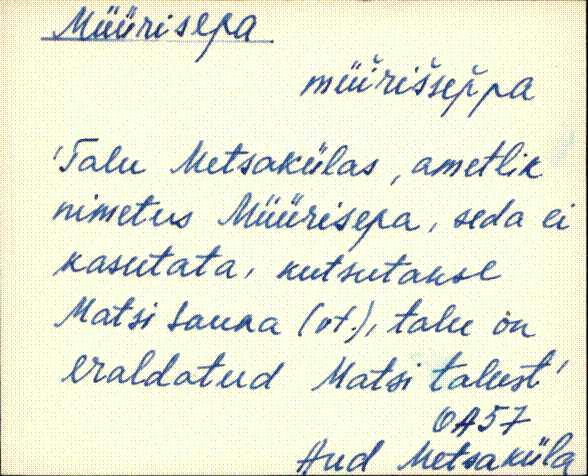 Müürisepa
müürišseppa
'Talu Metsakülas, ametlik
nimetus Müürisepa, seda ei
kasutata, kutsutakse
Matsi Sauna (vt.), talu on
eraldatud Matsi talust'
OA57
Aud Metsaküla